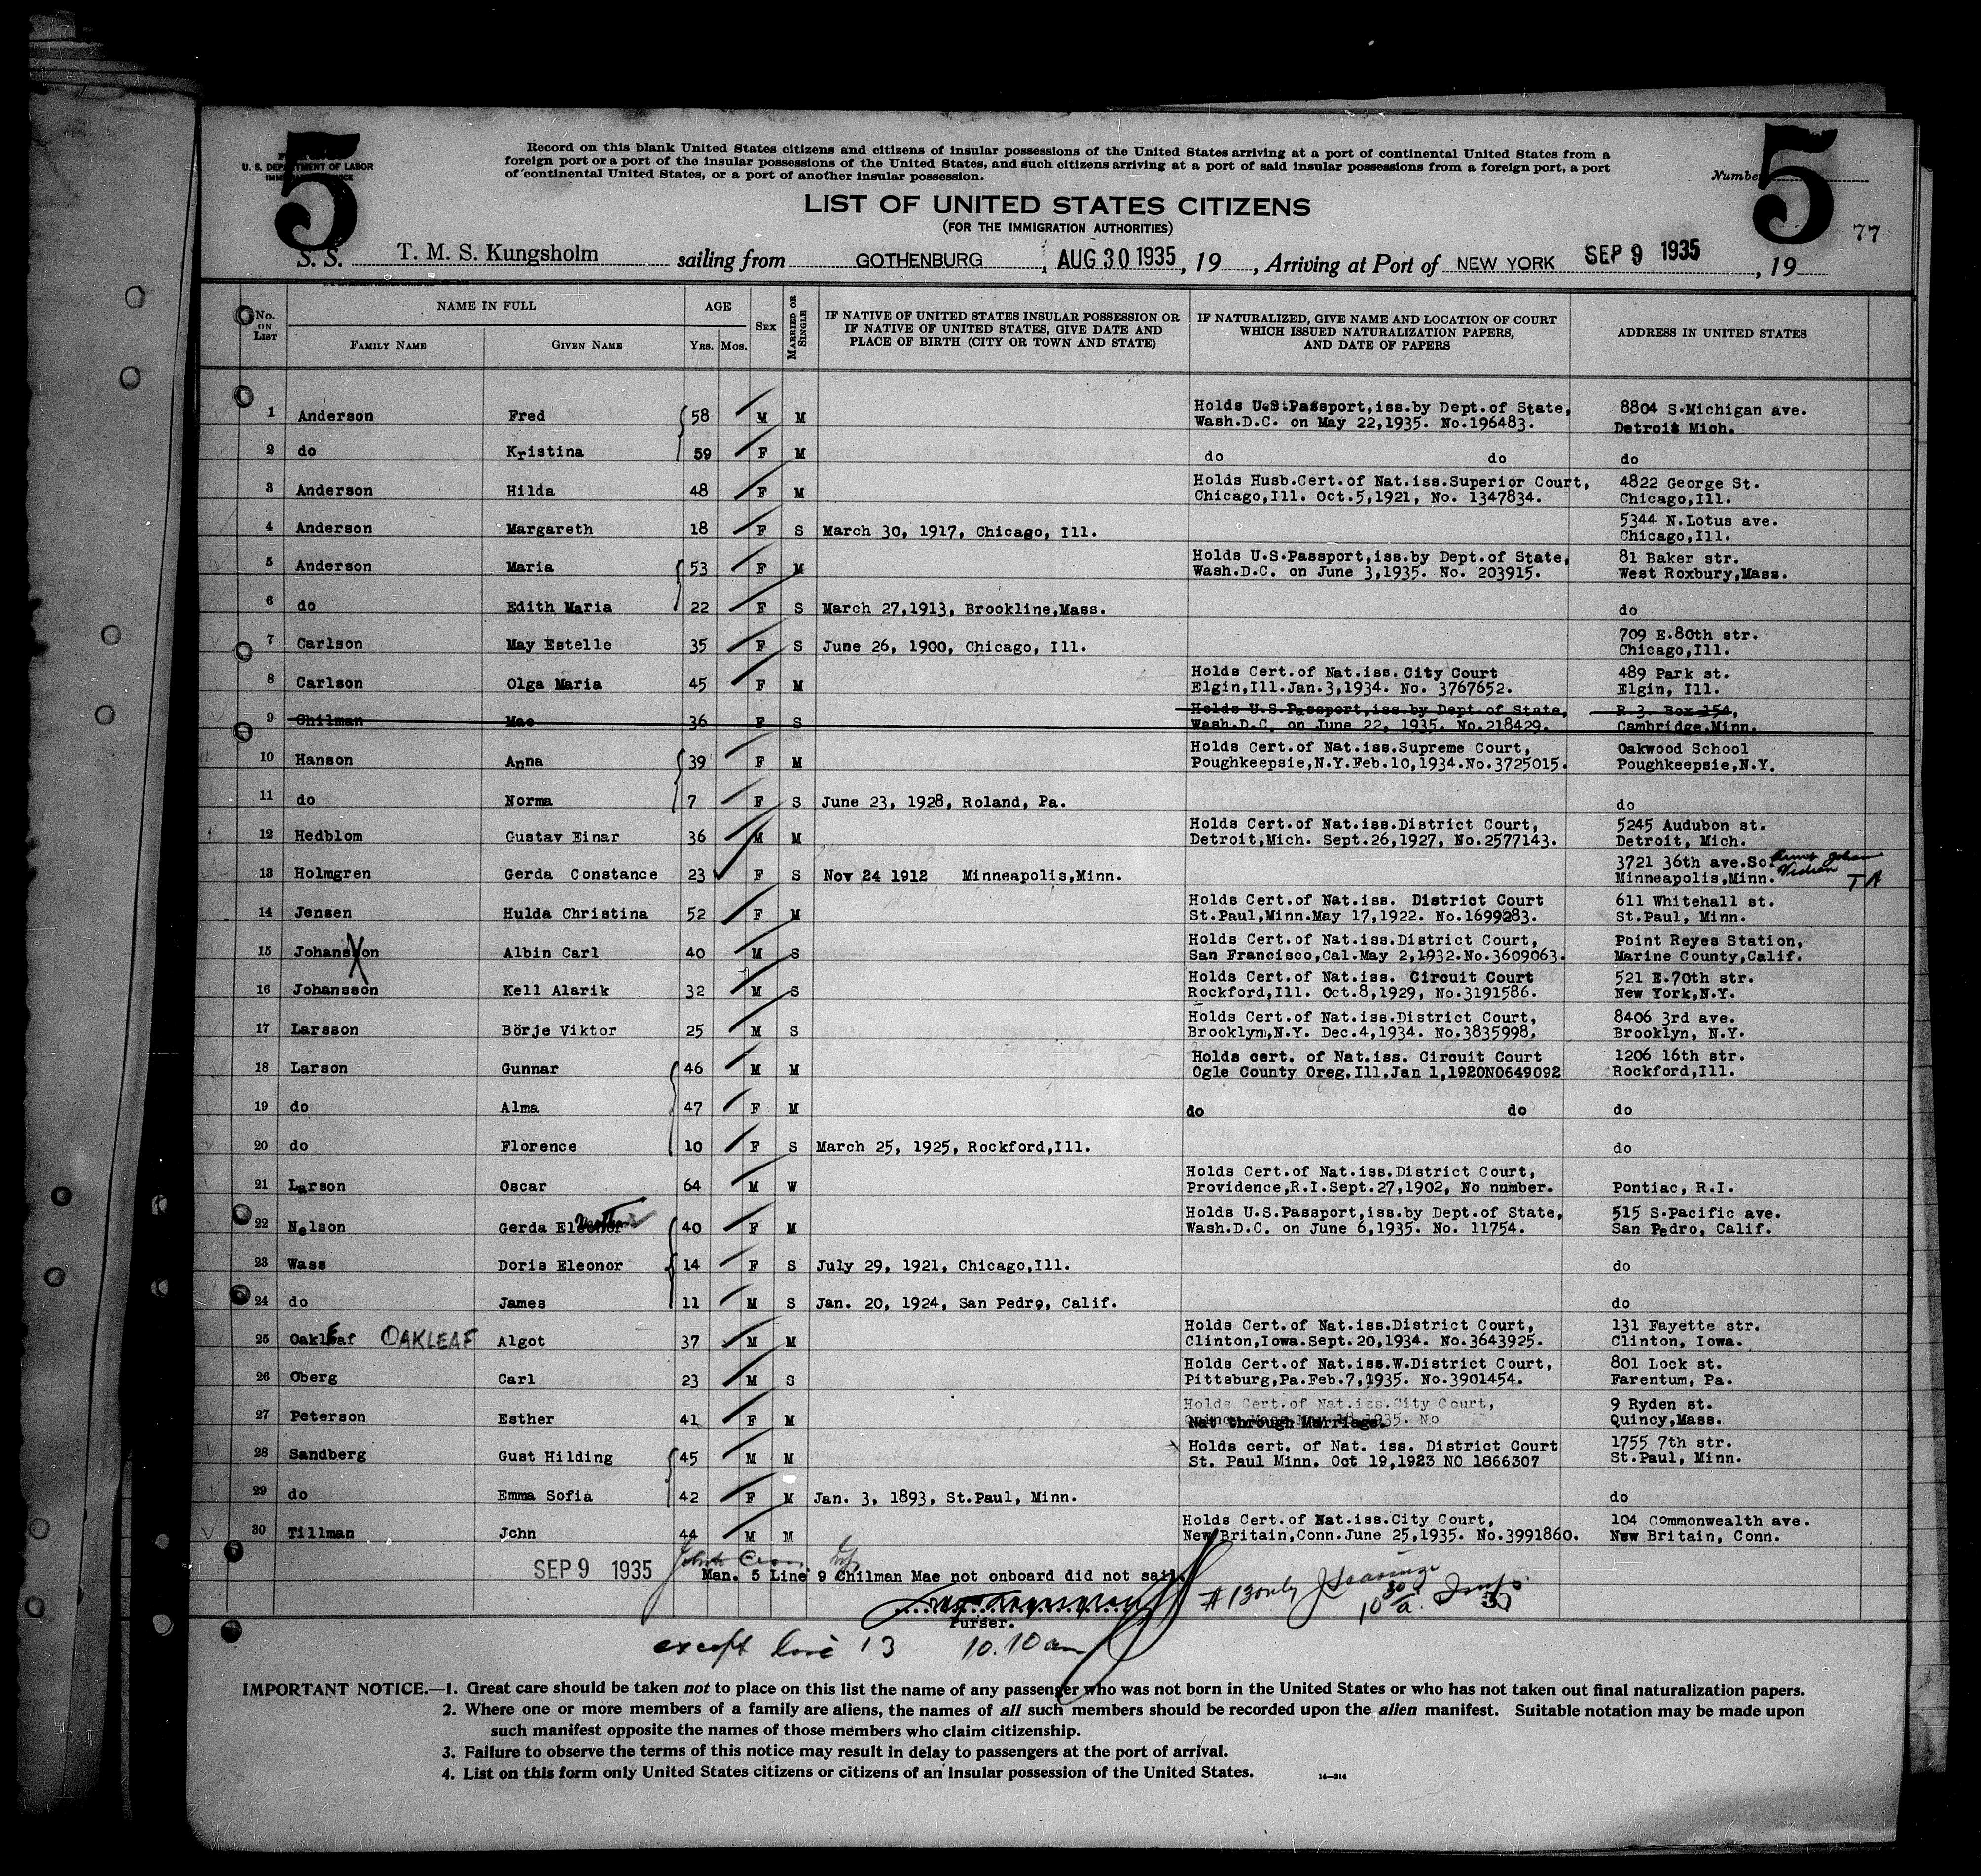 5
U. S. DEPARTMENT OF LABOR
Record on this blank United States citizens and citizens of insular possessions of the United States arriving at a port of continental United States from a
foreign port or a port of the insular possessions of the United States, and such citizens arriving at a port of said insular possessions from a foreign port, a port
of continental United States, or a port of another insular possession.
Number
5
77
LIST OF UNITED STATES CITIZENS
(FOR THE IMMIGRATION AUTHORITIES)
S. S. T. M. S. Kungsholm sailing from GOTHENBURG, AUG 30 1935, 19 , Arriving at Port of NEW YORK SEP 9 1935, 19
No. ON LIST
NAME IN FULL
FAMILY NAME GIVEN NAME
AGE
YRS. MOS.
SEX
MARRIED OR SINGLE
IF NATIVE OF UNITED STATES INSULAR POSSESSION OR
IF NATIVE OF UNITED STATES, GIVE DATE AND
PLACE OF BIRTH (CITY OR TOWN AND STATE)
IF NATURALIZED, GIVE NAME AND LOCATION OF COURT
WHICH ISSUED NATURALIZATION PAPERS,
AND DATE OF PAPERS
ADDRESS IN UNITED STATES
1 Anderson Fred 58 M M Holds U.S.Passport,iss.by Dept.of State, 8804 S.Michigan ave.
Wash.D.C. on May 22,1935. No.196483. Detroit Mich.
2 do Kristina 59 F M do do do
3 Anderson Hilda 48 F M Holds Husb.Cert.of Nat.iss.Superior Court, 4822 George St.
Chicago,Ill. Oct.5,1921, No. 1347834. Chicago,Ill.
4 Anderson Margareth 18 F S March 30, 1917, Chicago, Ill. 5344 N.Lotus ave.
Chicago,Ill.
5 Anderson Maria 53 F M Holds U.S.Passport,iss.by Dept.of State, 81 Baker str.
Wash.D.C. on June 3,1935. No. 203915. West Roxbury,Mass.
6 do Edith Maria 22 F S March 27,1913, Brookline,Mass. do
7 Carlson May Estelle 35 F S June 26, 1900, Chicago, Ill. 709 E.80th str.
Chicago,Ill.
8 Carlson Olga Maria 45 F M Holds Cert.of Nat.iss.City Court 489 Park st.
Elgin,Ill.Jan.3,1934. No. 3767652. Elgin, Ill.
9 Chilman Mae 36 F S Holds U.S.Passport,iss.by Dept.of State, R.3. Box 154,
Wash.D.C. on June 22, 1935. No.218429. Cambridge,Minn.
10 Hanson Anna 39 F M Holds Cert.of Nat.iss.Supreme Court, Oakwood School
Poughkeepsie,N.Y.Feb.10,1934.No.3725015. Poughkeepsie,N.Y.
11 do Norma 7 F S June 23, 1928, Roland, Pa. do
12 Hedblom Gustav Einar 36 M M Holds Cert.of Nat.iss.District Court, 5245 Audubon st.
Detroit,Mich. Sept.26,1927, No.2577143. Detroit, Mich.
13 Holmgren Gerda Constance 23 F S Nov 24 1912 Minneapolis,Minn. 3721 36th ave.So.
Minneapolis,Minn. TA
14 Jensen Hulda Christina 52 F M Holds Cert.of Nat.iss. District Court 611 Whitehall st.
St.Paul,Minn.May 17,1922. No.1699283. St.Paul, Minn.
15 Johansson Albin Carl 40 M S Holds Cert.of Nat.iss.District Court, Point Reyes Station,
San Francisco,Cal.May 2,1932.No.3609063. Marine County,Calif.
16 Johansson Kell Alarik 32 M S Holds Cert.of Nat.iss. Circuit Court 521 E.70th str.
Rockford,Ill. Oct.8,1929, No.3191586. New York,N.Y.
17 Larsson Börje Viktor 25 M S Holds Cert.of Nat.iss.District Court, 8406 3rd ave.
Brooklyn,N.Y. Dec.4,1934. No.3835998, Brooklyn, N.Y.
18 Larson Gunnar 46 M M Holds cert. of Nat.iss. Circuit Court 1206 16th str.
Ogle County Oreg.Ill.Jan 1,1920NO649092 Rockford,Ill.
19 do Alma 47 F M do do do
20 do Florence 10 F S March 25, 1925, Rockford,Ill. do
21 Larson Oscar 64 M W Holds Cert.of Nat.iss.District Court,
Providence,R.I.Sept.27,1902, No number. Pontiac, R.I.
22 Nelson Gerda Eleonor 40 F M Holds U.S.Passport,iss.by Dept.of State, 515 S.Pacific ave.
Wash.D.C. on June 6,1935. No. 11754. San Pedro, Calif.
23 Wass Doris Eleonor 14 F S July 29, 1921, Chicago,Ill. do
24 do James 11 M S Jan. 20, 1924, San Pedro, Calif. do
25 Oakleaf OAKLEAF Algot 37 M M Holds Cert.of Nat.iss.District Court, 131 Fayette str.
Clinton,Iowa.Sept.20,1934. No.3643925. Clinton, Iowa.
26 Oberg Carl 23 M S Holds Cert.of Nat.iss.W.District Court, 801 Lock st.
Pittsburg,Pa.Feb.7,1935. No.3901454. Farentum, Pa.
27 Peterson Esther 41 F M Holds Cert.of Nat.iss.City Court, 9 Ryden st.
Nat through Marriage. Quincy,Mass.
28 Sandberg Gust Hilding 45 M M Holds cert. of Nat. iss. District Court 1755 7th str.
St. Paul Minn. Oct 19,1923 NO 1866307 St.Paul, Minn.
29 do Emma Sofia 42 F M Jan. 3, 1893, St.Paul, Minn. do
30 Tillman John 44 M M Holds Cert.of Nat.iss.City Court, 104 Commonwealth ave.
New Britain,Conn.June 25,1935. No.3991860. New Britain, Conn.
SEP 9 1935
Man. 5 Line 9 Chilman Mae not onboard did not sail.
# 13 only
Purser.
except line 13 10.10 am
IMPORTANT NOTICE.—1. Great care should be taken not to place on this list the name of any passenger who was not born in the United States or who has not taken out final naturalization papers.
2. Where one or more members of a family are aliens, the names of all such members should be recorded upon the alien manifest. Suitable notation may be made upon
such manifest opposite the names of those members who claim citizenship.
3. Failure to observe the terms of this notice may result in delay to passengers at the port of arrival.
4. List on this form only United States citizens or citizens of an insular possession of the United States.
14—314